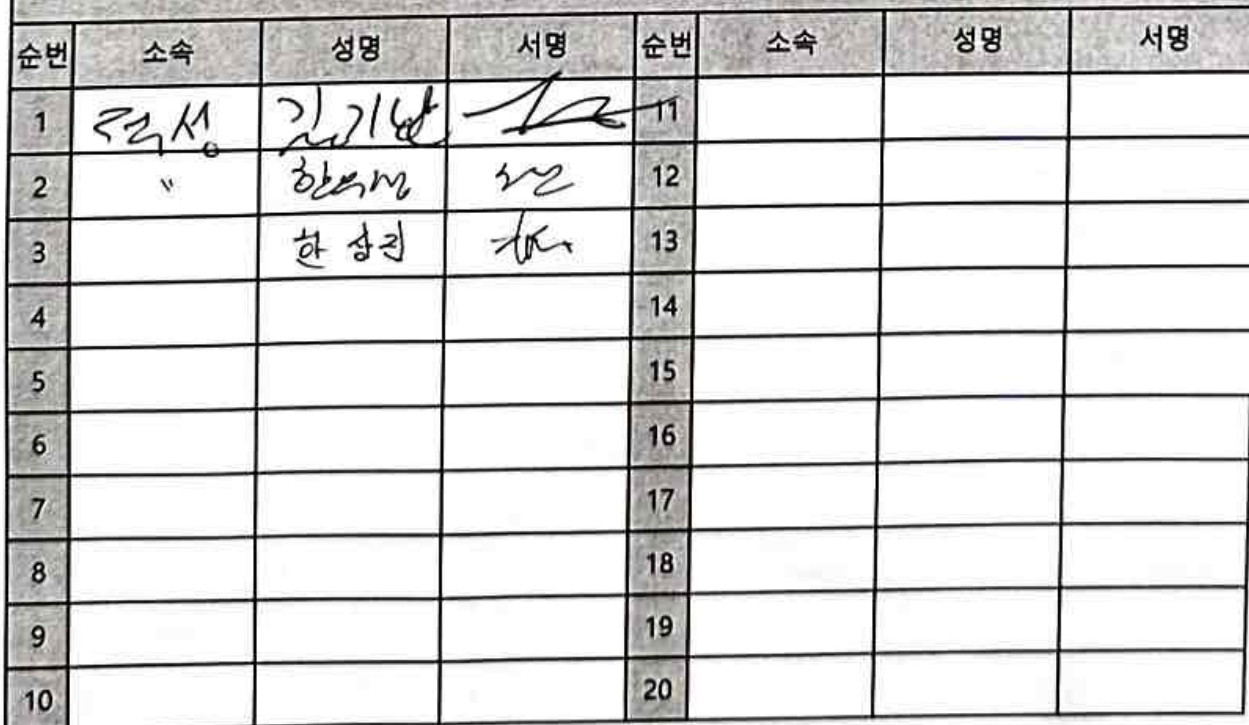 순번 소속 성명 서명 순번 소속 성명 서명
1 김기남 11
2 〃 12
3 한상진 13
4 14
5 15
6 16
7 17
8 18
9 19
10 20